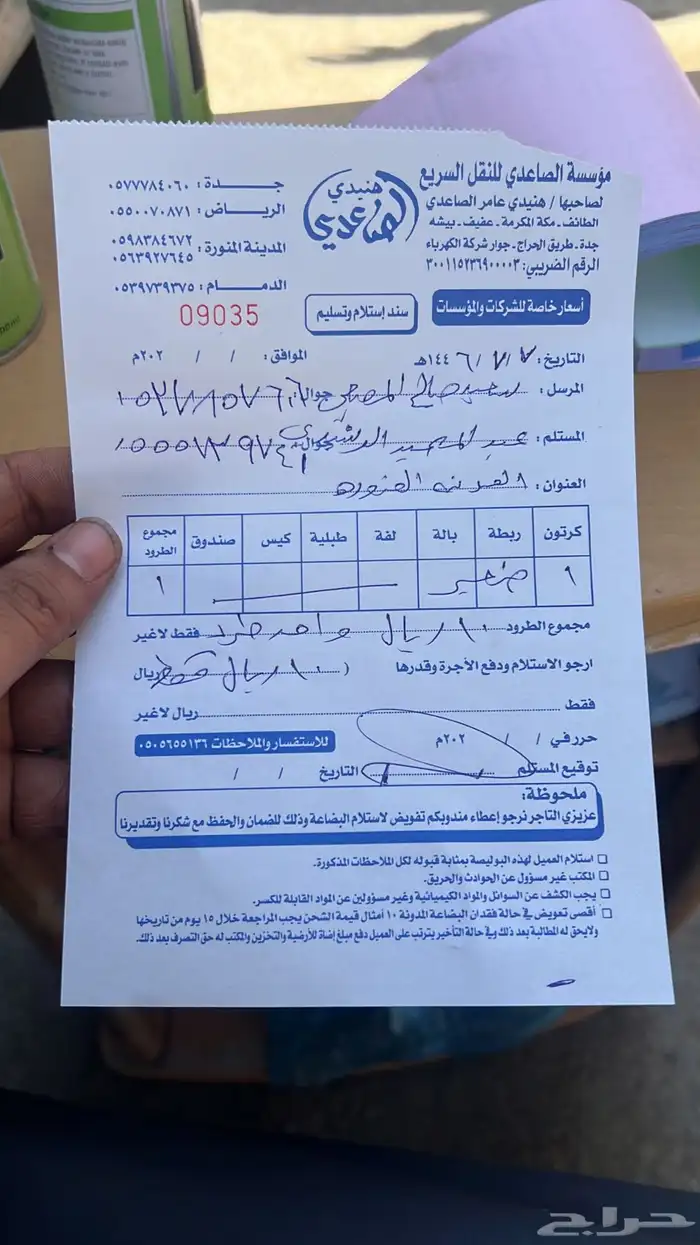 مؤسسة الصاعدي للنقل السريع
لصاحبها / هنيدي عامر الصاعدي
الطائف - مكة المكرمة - عفيف - بيشه
جدة - طريق الحراج - جوار شركة الكهرباء
الرقم الضريبي: ٣٠٠١١٥٢٣٦٩٠٠٠٠٣
هنيدي
الصاعدي
جـــدة : ٠٥٧٧٧٨٤٠٦٠
الرياض : ٠٥٥٠٠٧٠٨٧١
المدينة المنورة : ٠٥٩٨٣٨٤٦٧٢
٠٥٦٣٩٢٧٦٤٥
الدمـــام : ٠٥٣٩٧٣٩٣٧٥
أسعار خاصة للشركات والمؤسسات
سند إستلام وتسليم
09035
التاريخ : ٧ / ٧ / ١٤٤٦هـ الموافق : / / ٢٠٢م
المرسل : سعيد صالح جوال :
المستلم : عبد جوال :
العنوان : المدينه المنوره
كرتون ربطة بالة لفة طبلية كيس صندوق مجموع الطرود
١ صغير ١
مجموع الطرود ١٠ ريال واحد طرد فقط لاغير
ارجو الاستلام ودفع الأجرة وقدرها ( ١٠ ريال فقط ريال
فقط ريال لاغير
حرر في / / ٢٠٢م
للاستفسار والملاحظات ٠٥٠٥٦٥٥١٣٦
توقيع المستلم التاريخ / /
ملحوظة:
عزيزي التاجر نرجو إعطاء مندوبكم تفويض لاستلام البضاعة وذلك للضمان والحفظ مع شكرنا وتقديرنا
استلام العميل لهذه البوليصة بمثابة قبوله لكل الملاحظات المذكورة.
المكتب غير مسؤول عن الحوادث والحريق.
يجب الكشف عن السوائل والمواد الكيميائية وغير مسؤولين عن المواد القابلة للكسر.
أقصى تعويض في حالة فقدان البضاعة المدونة ١٠ أمثال قيمة الشحن يجب المراجعة خلال ١٥ يوم من تاريخها
ولايحق له المطالبة بعد ذلك وفي حالة التأخير يترتب على العميل دفع مبلغ إضافة للأرضية والتخزين والمكتب له حق التصرف بعد ذلك.
حراج